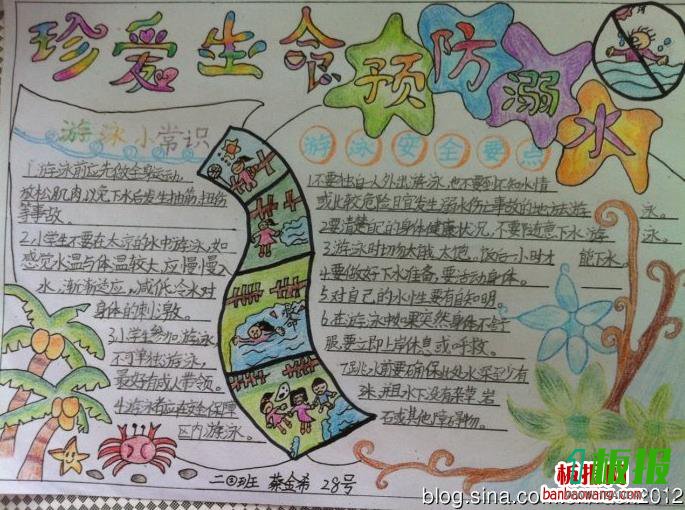 珍爱生命
预防溺水
游泳小常识
1.游泳前应先做全身运动,
放松肌肉,以免下水后发生抽筋,扭伤
等事故。
2.小学生不要在太凉的水中游泳,如
感觉水温与体温较大,应慢慢入
水,渐渐适应,减低冷水对
身体的刺激。
3.小学生参加游泳,
不可单独游泳,
最好有成人带领。
4.游泳者应在安全保障
区内游泳。
游泳安全要点
1.不要独自一人外出游泳,也不要到不知水情
或比较危险且宜发生溺水伤亡事故的地方去游泳。
2.要清楚自己的身体健康状况,不要随意下水游泳。
3.游泳时切勿太饿、太饱。饭后一小时才能下水。
4.要做好下水准备,要活动身体。
5.对自己的水性要有自知明。
6.在游泳中如果突然身体不舒
服,要立即上岸休息或呼救。
7.跳水前要确保此处水深至少有
米,并且水下没有杂草、岩
石或其他障碍物。
二④班 蔡金希 28号
板报网
板报
banbaowang.com
blog.sina.com
2012